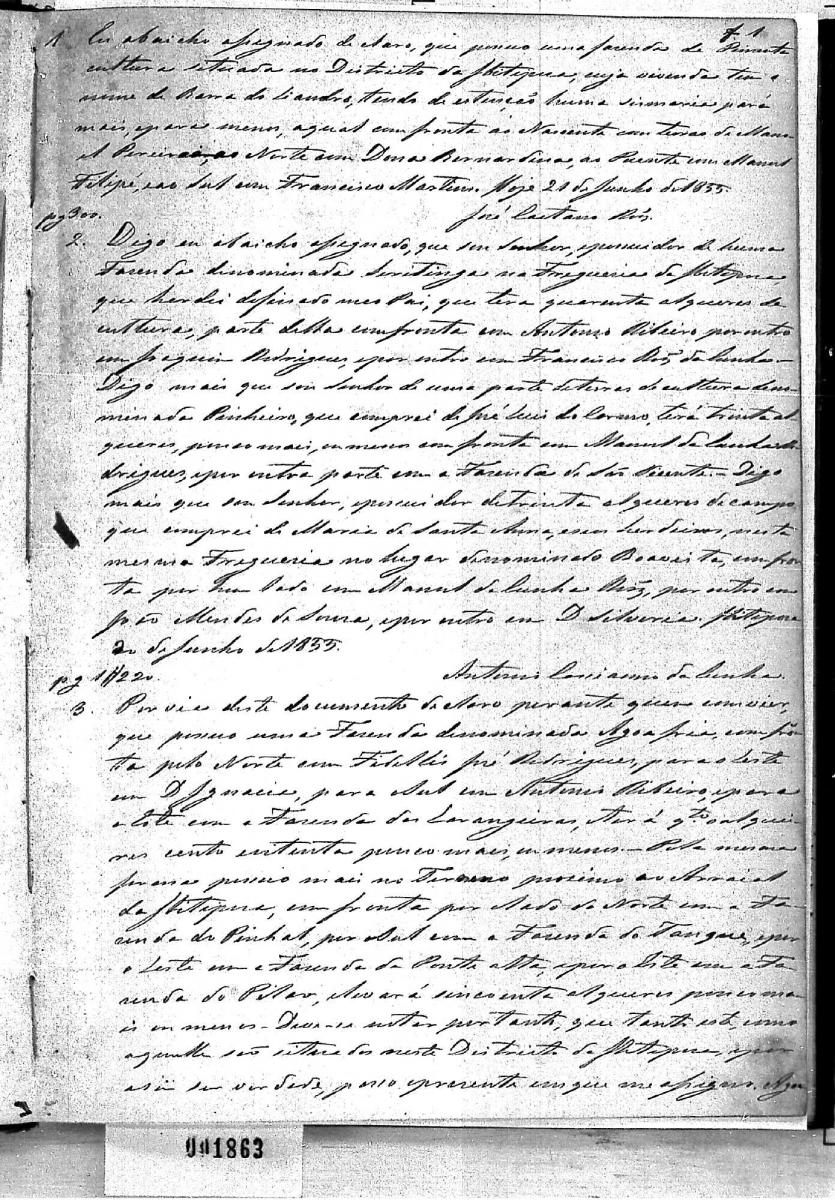 f 1
1 Eu abaicho asegnado declaro, que posuo uma fazenda de
cultura situada no Districto da Ibitipoca, cuja vivenda tem o
nome de Barra do Leandro, tendo de extenção huma sismaria pará
mais, epara menos, aqual comfronta ao Nascente com terras de Mano
el Pereira ao Norte com Dona Bernardina, ao Poente com Manoel
Felipé, eao Sul com Francisco Martins. Hoje 21 de Junho de 1855.
pg 300. José Caetano Roiz.
2. Digo eu abaicho asegnado, que sou Senhor, eposuidor de huma
Fazenda dinominada Seritinga na Freguezia da Ibitipoca,
que herdei definado meo Pai, que terá quarenta alqueres de
cultura, parte della comfronta com Antonio Ribeiro, por outro
com Joaquim Rodrigues, epor outro com Francisco Roiz da Cunha-
Digo mais que sou Senhor de uma parte de terras de cultura deno-
minada Pinheiro, que comprei de José Luis do, terá trinta al
queres, pouco mais, ou menos comfronta com Manoel da Cunha Ro
drigues, epor outra parte com a Fazenda de São Vicente- Digo
mais que sou Senhor, eposuidor de trinta alqueres de campo
que comprei de Maria de Santa Anna, eseos herdeiros, nesta
mesma Freguezia no lugar denominado Boavista, comfron
ta por hum lado com Manoel da Cunha Roiz, por outro com
João Mendes de Souza, epor outro com D Silveria. Ibitipoca
20 de Junho de 1855.
pg 1#220. Antonio Cassiano da Cunha
3. Por via deste documento declaro perante quem comvier,
que posuo uma Fazenda denominada Agoa fria, comfrõ
ta pelo Norte com Fidellis José Rodrigues, para o leste
com D Ignacia, para Sul com Antonio Ribeiro, epara
oeste com a Fazenda das Larangeiras, terá qto alquei-
res cento eutenta pouco mais, ou menos.- Pela mesma
forma posuo mais no Terreno procimo ao Arraial
da Ibitipoca, comfronta por lado do Norte com a Fa
zenda do Pinhal, por Sul com a Fazenda do Tanque, epor
o Leste com a Fazenda da Ponte alta, epor oeste com a Fa-
zenda do Pilar, elevará sincoenta alqueres pouco ma
is ou menos- Deve-se notar portanto, que tanto este, como
aquelle são situados neste Districto da Ibitipoca, epor
asim ser verdade, paso opresente emque me asegno. Agoa
001863